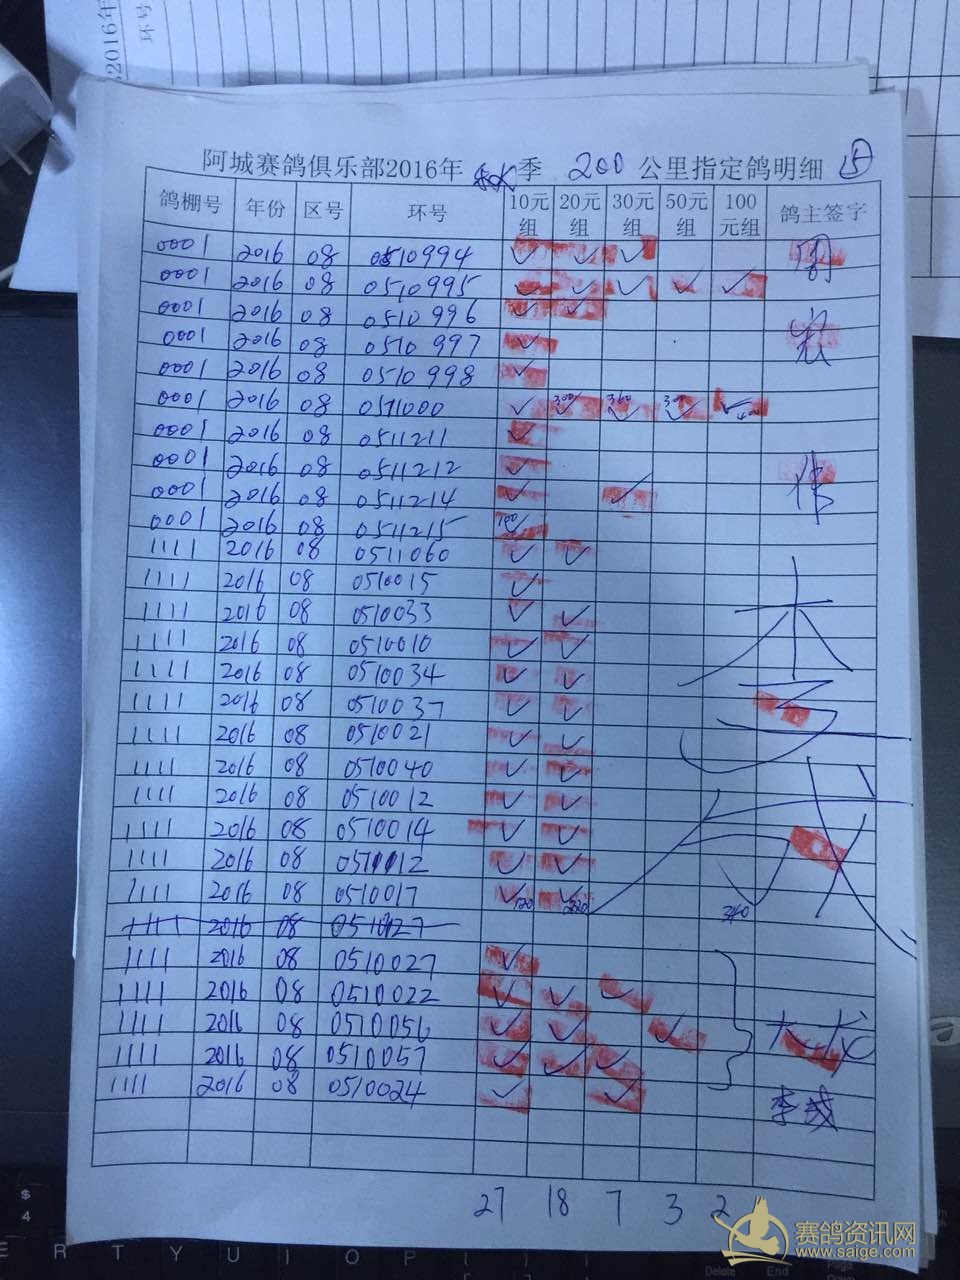 2016年
环号
阿城赛鸽俱乐部2016年 秋季 200 公里指定鸽明细
鸽棚号 年份 区号 环号 10元组 20元组 30元组 50元组 100元组 鸽主签字
0001 2016 08 0510994 ✓ ✓ ✓
0001 2016 08 0510995 ✓ ✓ ✓ ✓ ✓
0001 2016 08 0510996 ✓ ✓
0001 2016 08 0510997 ✓
0001 2016 08 0510998 ✓
0001 2016 08 0511000 ✓ 300 ✓ 360 ✓ 300 ✓ ✓ 400
0001 2016 08 0511211 ✓
0001 2016 08 0511212 ✓
0001 2016 08 0511214 ✓ ✓
0001 2016 08 0511215 100 ✓
1111 2016 08 0511060 ✓ ✓
1111 2016 08 0510015 ✓
1111 2016 08 0510033 ✓ ✓
1111 2016 08 0510010 ✓ ✓
1111 2016 08 0510034 ✓ ✓
1111 2016 08 0510037 ✓ ✓
1111 2016 08 0510021 ✓ ✓
1111 2016 08 0510040 ✓ ✓
1111 2016 08 0510012 ✓ ✓
1111 2016 08 0510014 ✓ ✓
1111 2016 08 0510012 ✓ ✓
1111 2016 08 0510017 ✓ 120 ✓ 220 340
1111 2016 08 0510027
1111 2016 08 0510027 ✓
1111 2016 08 0510022 ✓ ✓ ✓
1111 2016 08 0510056 ✓ ✓ ✓
1111 2016 08 0510057 ✓ ✓ ✓
1111 2016 08 0510024 ✓ ✓
李成
27 18 7 3 2
赛鸽资讯网
www.saige.com
$
4
E R T Y U I O P
Delete End Page Down